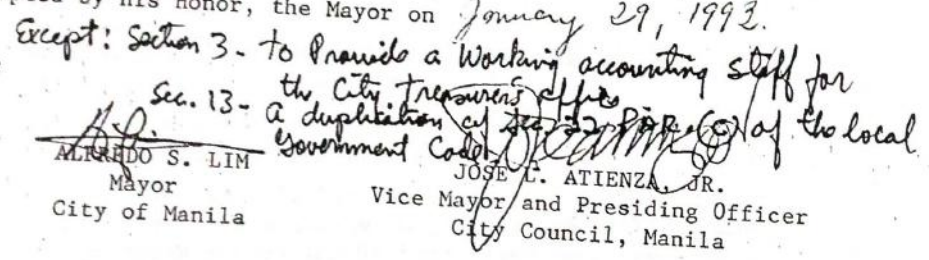 by His Honor, the Mayor on January 29, 1993.
Except: Section 3 - to Provide a Working accounting staff for
the City Treasurer's Office
Sec. 13 - A duplication of Sec. 22 Par. (c) of the local
Government Code
ALFREDO S. LIM
Mayor
City of Manila
JOSE L. ATIENZA, JR.
Vice Mayor and Presiding Officer
City Council, Manila